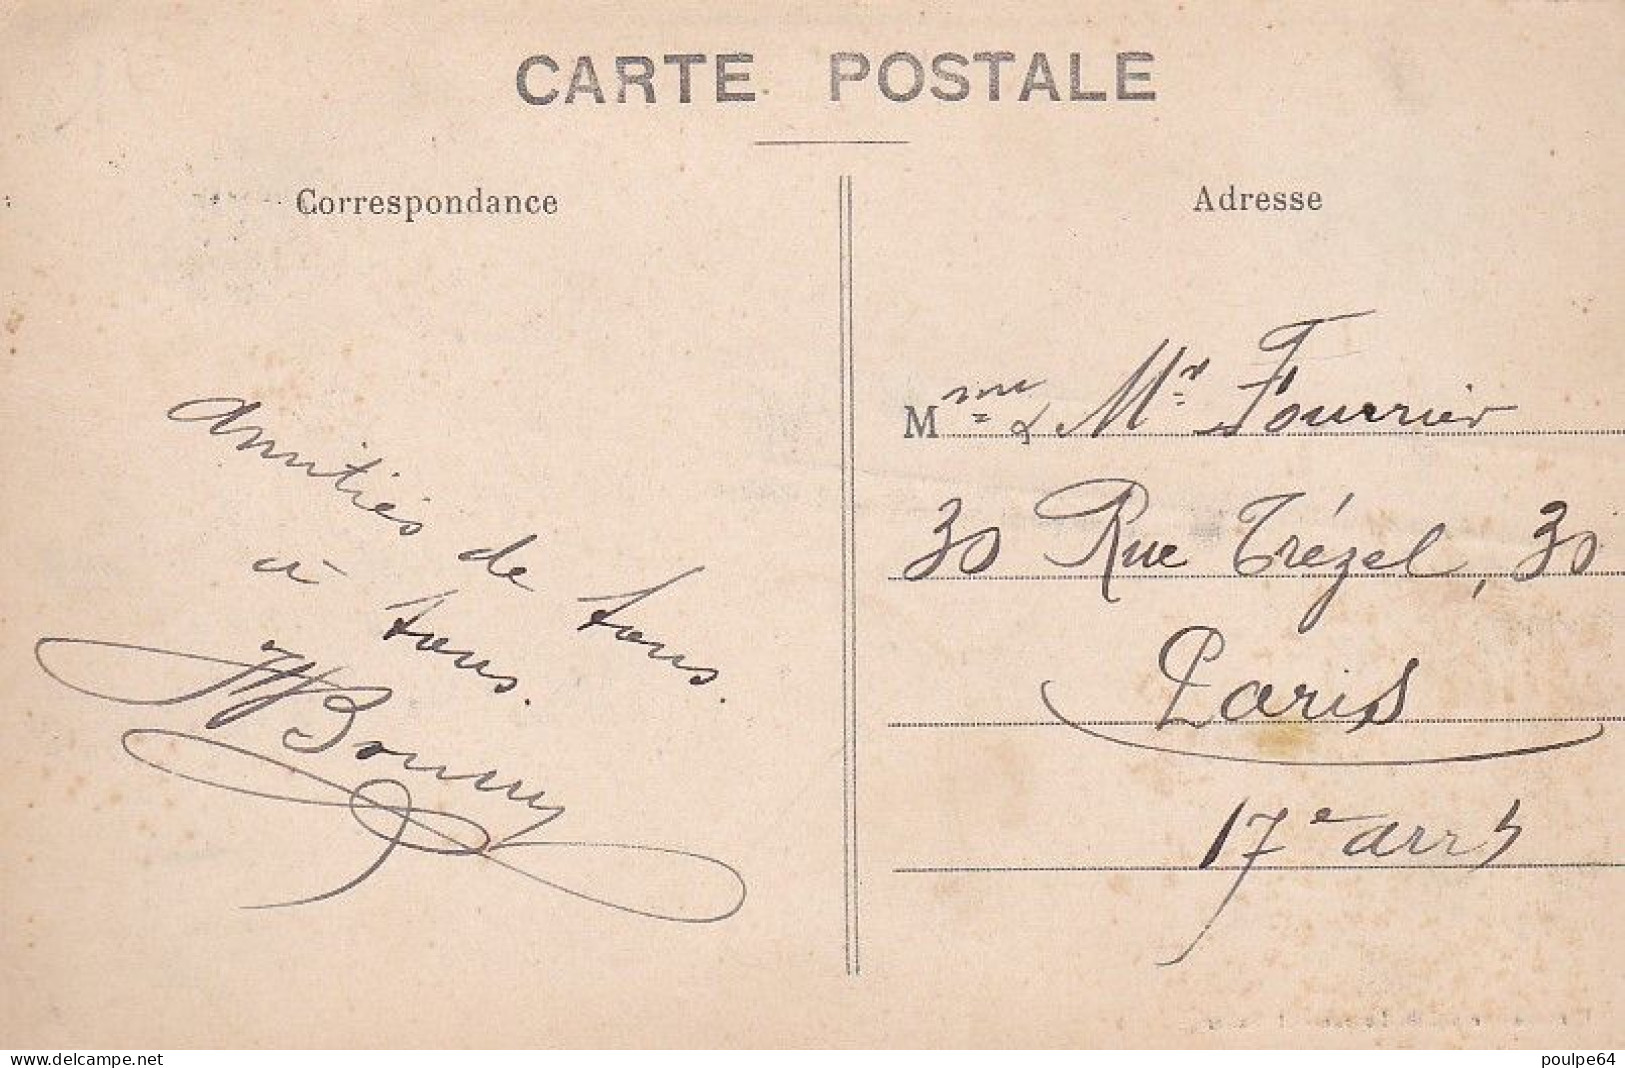 CARTE POSTALE
Correspondance
Amitiés de tous
à tous.
Adresse
Mme & Mr Fourrier
30 Rue Trézel, 30
Paris
17e arrt
delcampe.net
poulpe64